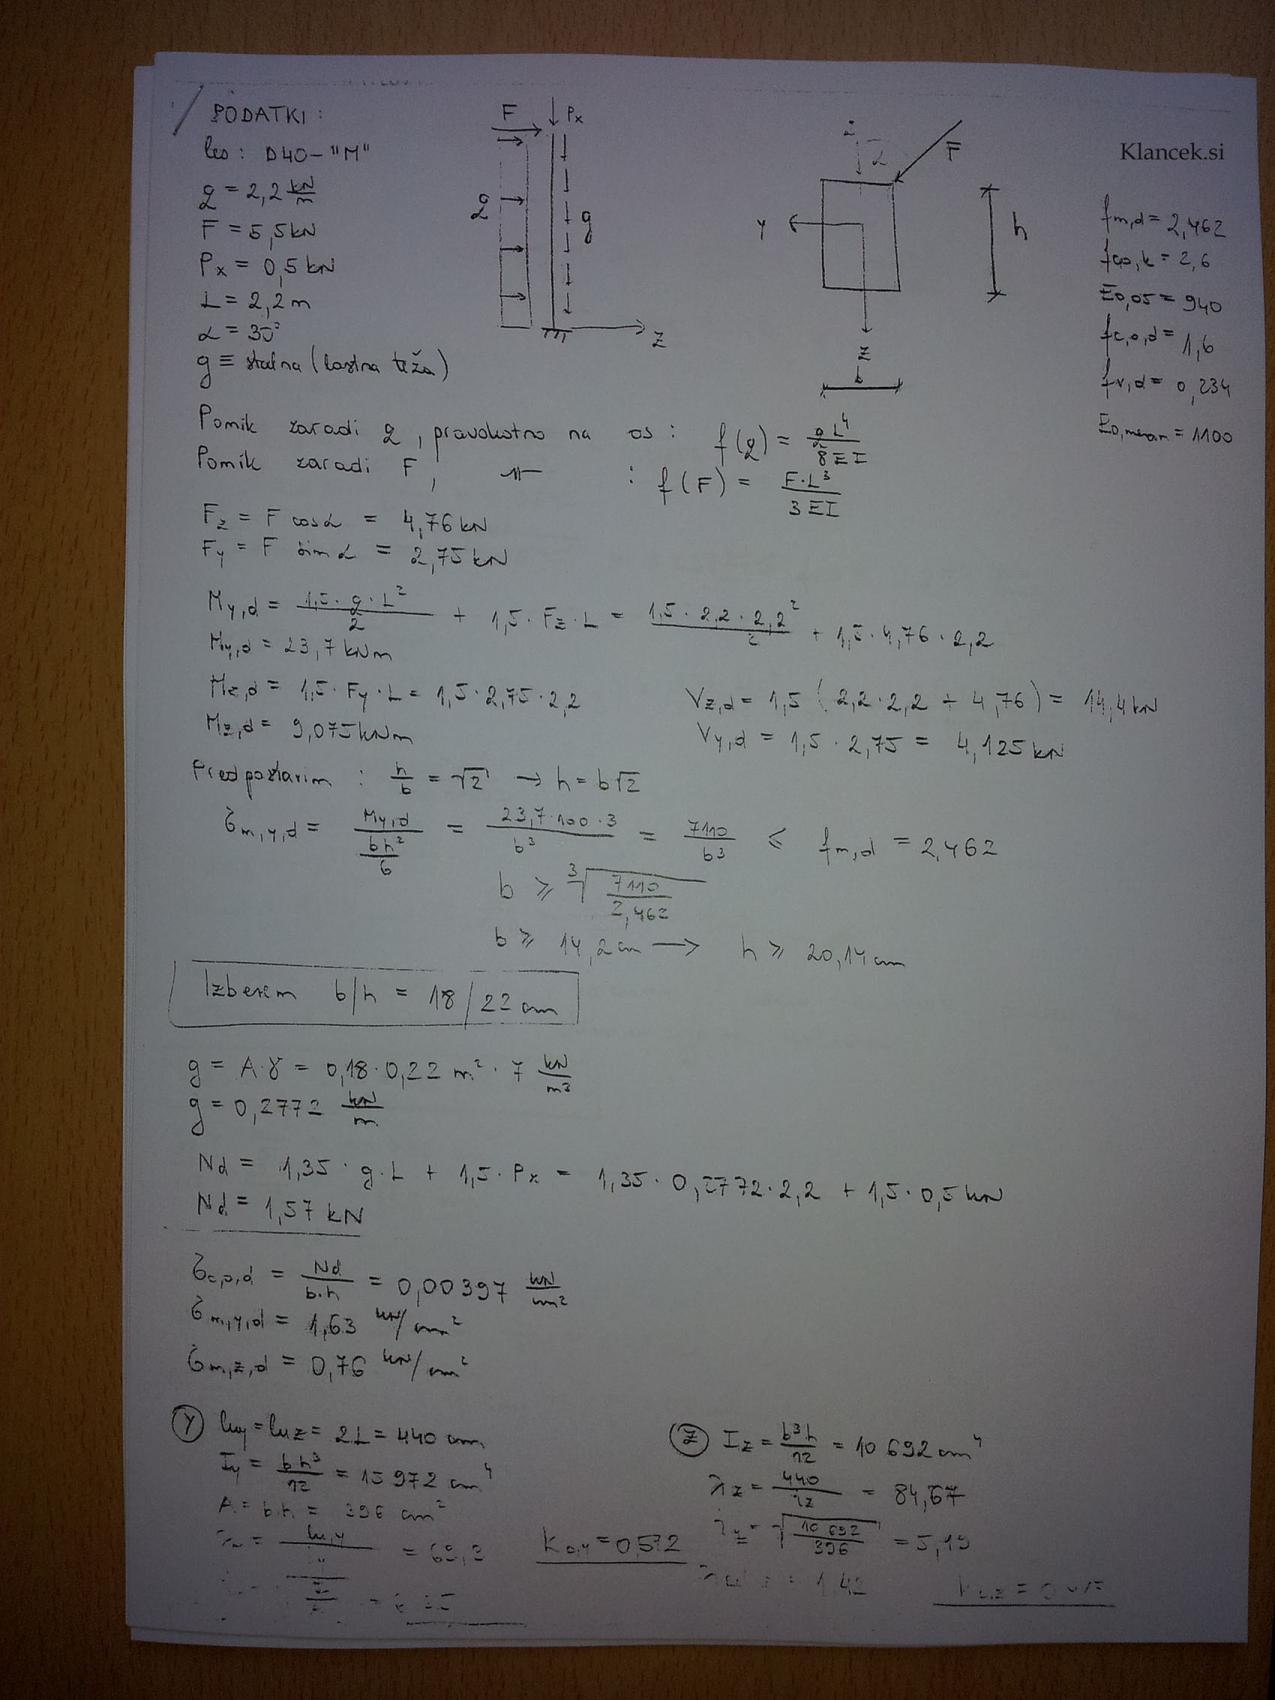 PODATKI:
les: D40-"M"
q = 2,2 kN/m
F = 5,5 kN
Px = 0,5 kN
L = 2,2 m
α = 30°
g ≡ stalna (lastna teža)
F
Px
q
g
z
F
y
z
b
h
Klancek.si
fm,d = 2,462
fc,0,k = 2,6
E0,05 = 940
fc,0,d = 1,6
fv,d = 0,234
E0,mean = 1100
Pomik zaradi q, pravokotno na os: f(q) = qL⁴/8EI
Pomik zaradi F, -"- : f(F) = F·L³/3EI
Fz = F cosα = 4,76 kN
Fy = F sinα = 2,75 kN
My,d = 1,5·q·L²/2 + 1,5·Fz·L = 1,5·2,2·2,2²/2 + 1,5·4,76·2,2
My,d = 23,7 kNm
Mz,d = 1,5·Fy·L = 1,5·2,75·2,2
Mz,d = 9,075 kNm
Vz,d = 1,5 (2,2·2,2 + 4,76) = 14,4 kN
Vy,d = 1,5·2,75 = 4,125 kN
Predpostavim: h/b = √2 → h = b√2
σm,y,d = My,d/(bh²/6) = 23,7·100·3/b³ = 7110/b³ ≤ fm,d = 2,462
b ≥ ³√(7110/2,462)
b ≥ 14,2 cm → h ≥ 20,14 cm
Izberem b/h = 18/22 cm
g = A·γ = 0,18·0,22 m²·7 kN/m³
g = 0,2772 kN/m
Nd = 1,35·g·L + 1,5·Px = 1,35·0,2772·2,2 + 1,5·0,5 kN
Nd = 1,57 kN
σc,0,d = Nd/b·h = 0,00397 kN/cm²
σm,y,d = 1,63 kN/cm²
σm,z,d = 0,76 kN/cm²
y
luy = luz = 2L = 440 cm
Iy = bh³/12 = 15 972 cm⁴
A = b·h = 396 cm²
kc,y = 0,572
z
Iz = b³h/12 = 10 692 cm⁴
λz = 440/iz = 84,67
iz = √(10 692/396) = 5,19
= 1,42